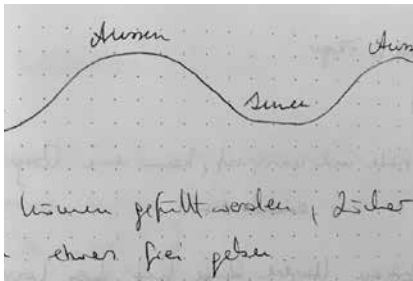 Aussen Auss
Innen
können gefüllt werden, Löcher
etwas frei geben